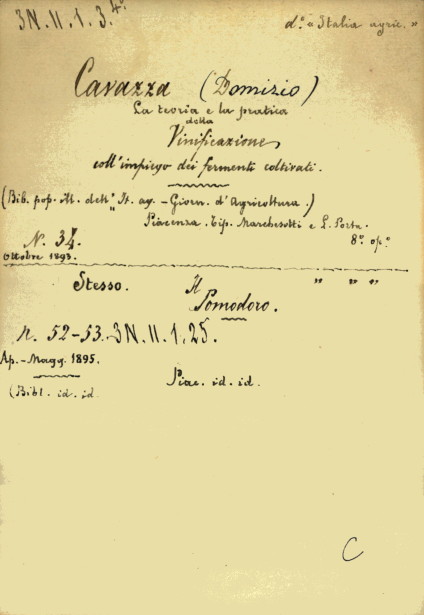 3N. II. 1. 3. 4º
d.º "Italia agric."
Cavazza (Domizio)
La teoria e la pratica
della
Vinificazione
coll'impiego dei fermenti coltivati.
(Bib. pop. ill. dell' "It. ag. - Giorn. d'Agricoltura.)
Piacenza. Tip. Marchesotti e L. Porta.
N. 34. 8º op.º
Ottobre 1893.
Stesso. Il " " "
Pomodoro.
n. 52-53. 3N. II. 1. 25.
Ap.-Magg. 1895.
Piac. id. id.
(Bibl. id. id
C